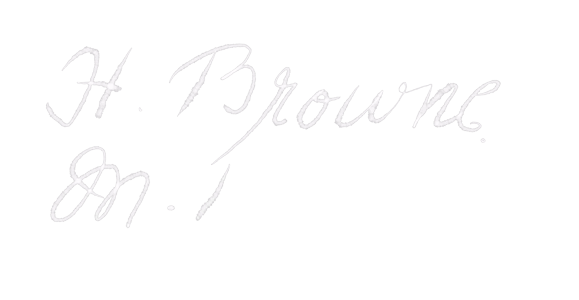 H. Browne.
M. 1